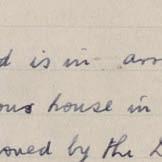 d is in arr
ous house in
oved by the D